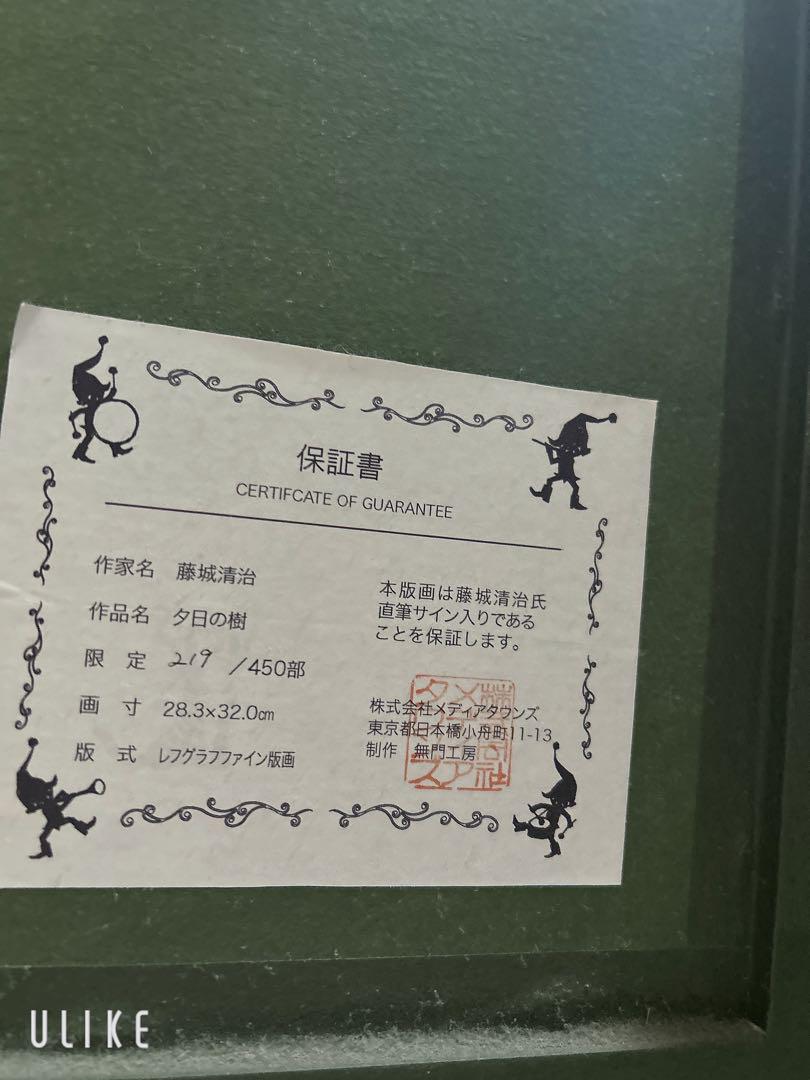 保証書
CERTIFCATE OF GUARANTEE
作家名 藤城清治
作品名 夕日の樹
限 定 219 /450部
画 寸 28.3×32.0㎝
版 式 レフグラフファイン版画
本版画は藤城清治氏
直筆サイン入りである
ことを保証します。
株式会社メディアタウンズ
東京都日本橋小舟町11-13
制作 無門工房
ULIKE